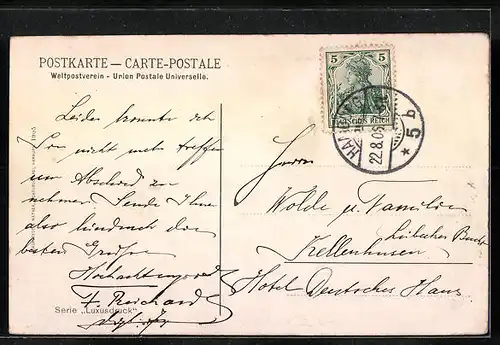 POSTKARTE — CARTE-POSTALE
Weltpostverein - Union Postale Universelle.
Leider konnte ich
Sie nicht mehr treffen
um Abschied zu
nehmen. Sende Ihnen
also hindurch die
besten Grüße
Hochachtungsvoll
F. Reichard
Serie „Luxusdruck"
1905
5 5
DEUTSCHES REICH
HAMBURG
22.8.05
* 5 b
Herrn
Wolde u. Familie
Lübecker Bucht
Kellenhusen
Hotel Deutsches Haus